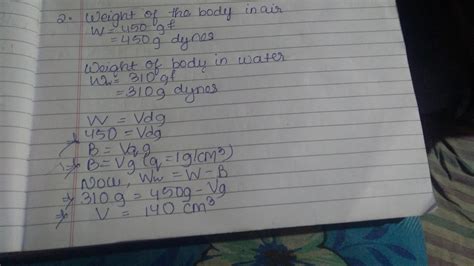 2. Weight of the body in air
W = 450 gf
= 450 g dynes
Weight of body in water
Ww = 310 gf
= 310 g dynes
W = Vdg
⇒ 450 = Vdg
B = Vqg
⇒ B = Vg (q = 1g/cm³)
Now, Ww = W - B
⇒ 310 g = 450g - Vg
⇒ V = 140 cm³